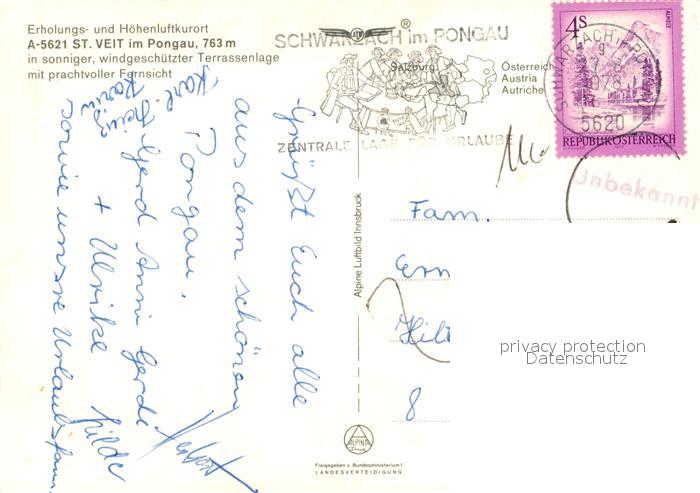 Erholungs- und Höhenluftkurort
A-5621 ST. VEIT im Pongau, 763 m
in sonniger, windgeschützter Terrassenlage
mit prachtvoller Fernsicht
SCHWARZACH im PONGAU
Salzburg
Österreich
Austria
Autriche
ZENTRALE LAGE FÜR URLAUBE
4s
ALMSEE
SCHWARZACH IM PO
1978
5620
REPUBLIK ÖSTERREICH
Unbekannt
Grüßt Euch alle
aus dem schönen
Pongau.
Karl-Heinz
Karin
Gerd Anni Gerdi
+ Ulrike Hilde
Herbert
sowie unsere Urlaubsfam.
Alpine Luftbild Innsbruck
Fam.
Ern
Hil
8
privacy protection
Datenschutz
ALPINE
Druck
Freigegeben v. Bundesministerium f.
LANDESVERTEIDIGUNG